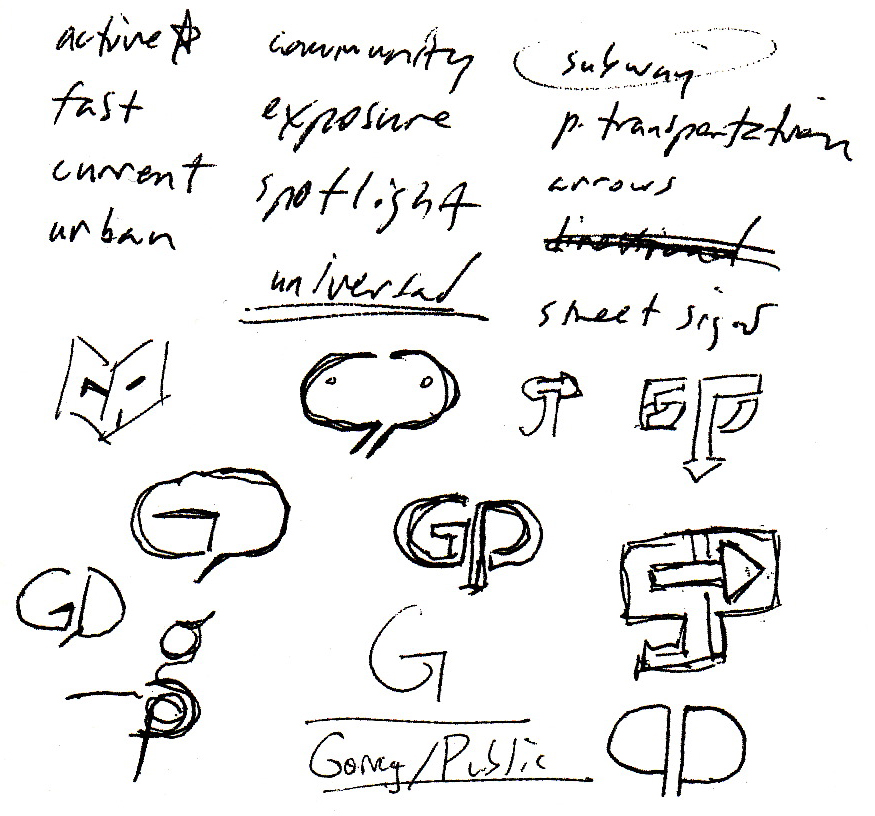 active
fast
current
urban
community
exposure
spotlight
universal
subway
p. transportation
arrows
directional
street signs
G
GP
GP
GP
G
Going/Public